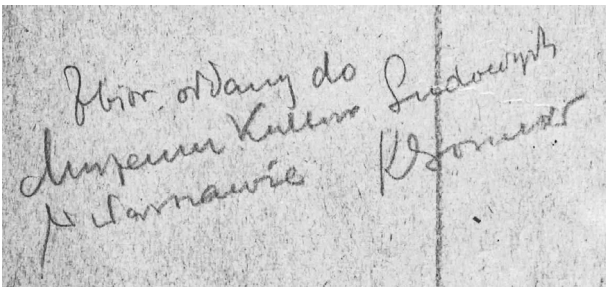 Zbiór oddany do
Muzeum Kultur Ludowych
w Warszawie